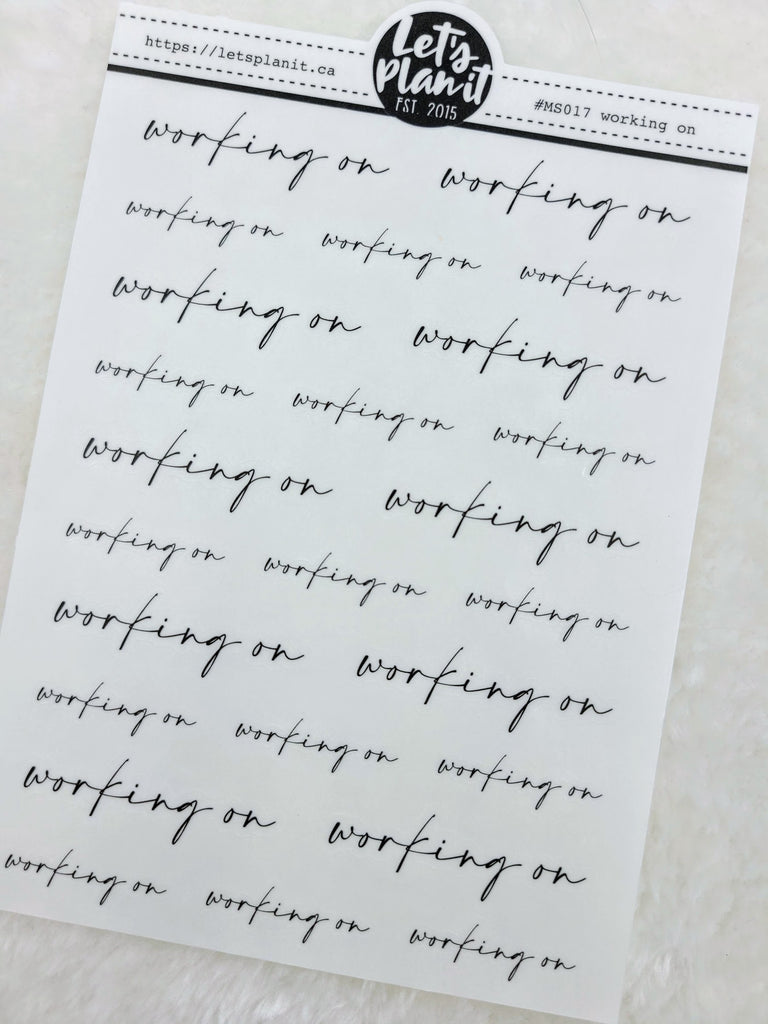 https://letsplanit.ca
Let's
Plan it
EST. 2015
#MS017 working on
working on working on
working on working on working on
working on working on
working on working on working on
working on working on
working on working on working on
working on working on
working on working on working on
working on working on
working on working on working on